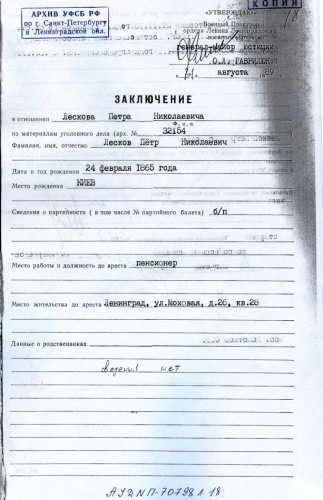 АРХИВ УФСБ РФ
по г. Санкт-Петербургу
и Ленинградской обл.
КОПИЯ
18
"УТВЕРЖДАЮ"
Военный Прокурор
ордена Ленина Ленинградского
генерал-майор юстиции
О.А. ГАВРИЛЮК
31 августа 89
ЗАКЛЮЧЕНИЕ
в отношении Лескова Петра Николаевича
Ф. и. о.
по материалам уголовного дела (арх. № 32154
Фамилия, имя, отчество Лесков Пётр Николаевич
Дата и год рождения 24 февраля 1865 года
Место рождения КИЕВ
Сведения о партийности ( в том числе № партийного билета) б/п
Место работы и должность до ареста пенсионер
Место жительства до ареста Ленинград, ул.Моховая, д.26, кв.28
Данные о родственниках
сведений нет
АУД№П-70798 л.18